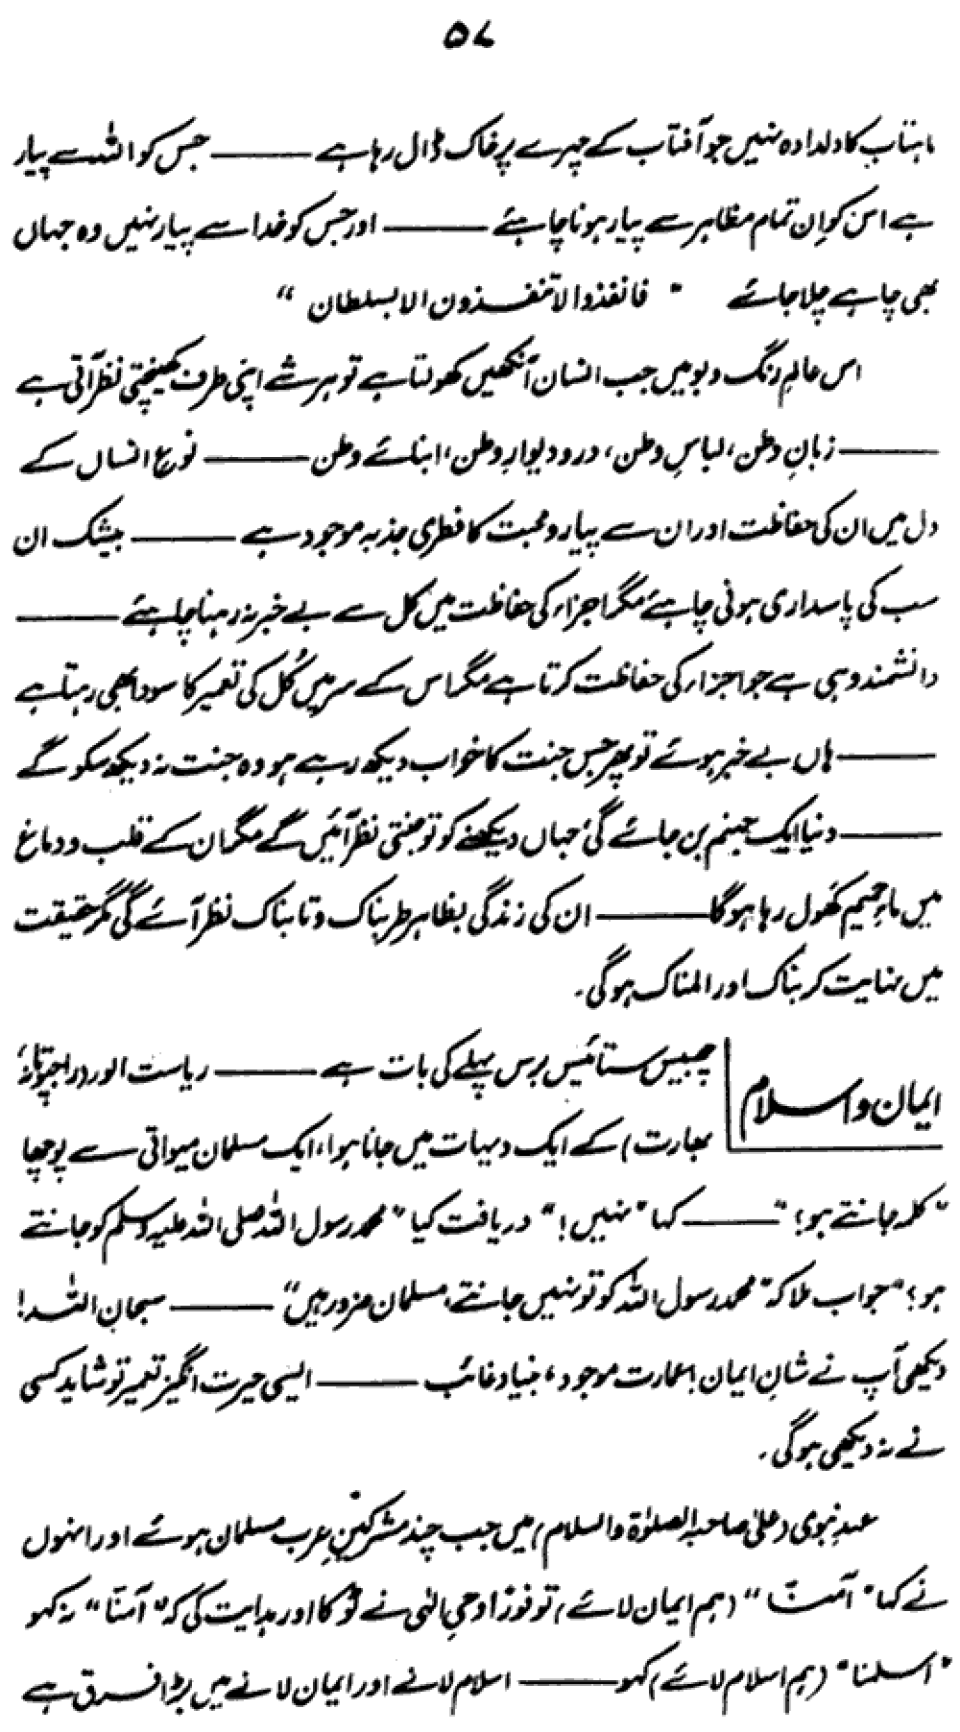 ۵۷
ماہتاب کا دلدادہ نہیں جو آفتاب کے چہرے پر خاک ڈال رہا ہے ——— جس کو اللہ سے پیار
ہے اس کو اِن تمام مظاہر سے پیار ہونا چاہئے ——— اور جس کو خدا سے پیار نہیں وہ جہاں
بھی چاہے چلا جائے " فانفذوا لا تنفذون الا بسلطان "
اس عالمِ رنگ و بو میں جب انسان آنکھیں کھولتا ہے تو ہر شے اپنی طرف کھینچتی نظر آتی ہے
——— زبانِ وطن، لباسِ وطن، در و دیوارِ وطن، ابنائے وطن ——— نوعِ انساں کے
دل میں ان کی حفاظت اور ان سے پیار و محبت کا فطری جذبہ موجود ہے ——— بیشک ان
سب کی پاسداری ہونی چاہئے مگر اجزاء کی حفاظت میں کُل سے بے خبر نہ رہنا چاہئے ———
دانشمند وہی ہے جو اجزاء کی حفاظت کرتا ہے مگر اس کے سر میں کُل کی تعمیر کا سودا بھی رہتا ہے
——— ہاں بے خبر ہوئے تو پھر جس جنت کا خواب دیکھ رہے ہو وہ جنت نہ دیکھ سکو گے
——— دنیا ایک جہنم بن جائے گی، جہاں دیکھنے کو تو جنتی نظر آئیں گے مگر ان کے قلب و دماغ
میں ماءِ حمیم کھول رہا ہوگا ——— ان کی زندگی بظاہر طربناک و تابناک نظر آئے گی مگر حقیقت
میں نہایت کربناک اور المناک ہوگی۔
ایمان و اسلام
چھبیس ستائیس برس پہلے کی بات ہے ——— ریاست الور (راجپوتانہ،
بھارت) کے ایک دیہات میں جانا ہوا، ایک مسلمان میواتی سے پوچھا
"کلمہ جانتے ہو؟" ——— کہا "نہیں!" دریافت کیا "محمد رسول اللہ صلی اللہ علیہ وسلم کو جانتے
ہو؟" جواب ملا کہ "محمد رسول اللہ کو تو نہیں جانتے، مسلمان ضرور ہیں" ——— سبحان اللہ!
دیکھی آپ نے شانِ ایمان! عمارت موجود، بنیاد غائب ——— ایسی حیرت انگیز تعمیر تو شاید کسی
نے نہ دیکھی ہوگی۔
عہدِ نبوی (علیٰ صاحبہا الصلوٰۃ والسلام) میں جب چند مشرکینِ عرب مسلمان ہوئے اور انہوں
نے کہا "آمنّا" (ہم ایمان لائے) تو فوراً وحیِ الٰہی نے ٹوکا اور ہدایت کی کہ "آمنّا" نہ کہو
"اسلمنا" (ہم اسلام لائے) کہو ——— اسلام لانے اور ایمان لانے میں بڑا فرق ہے